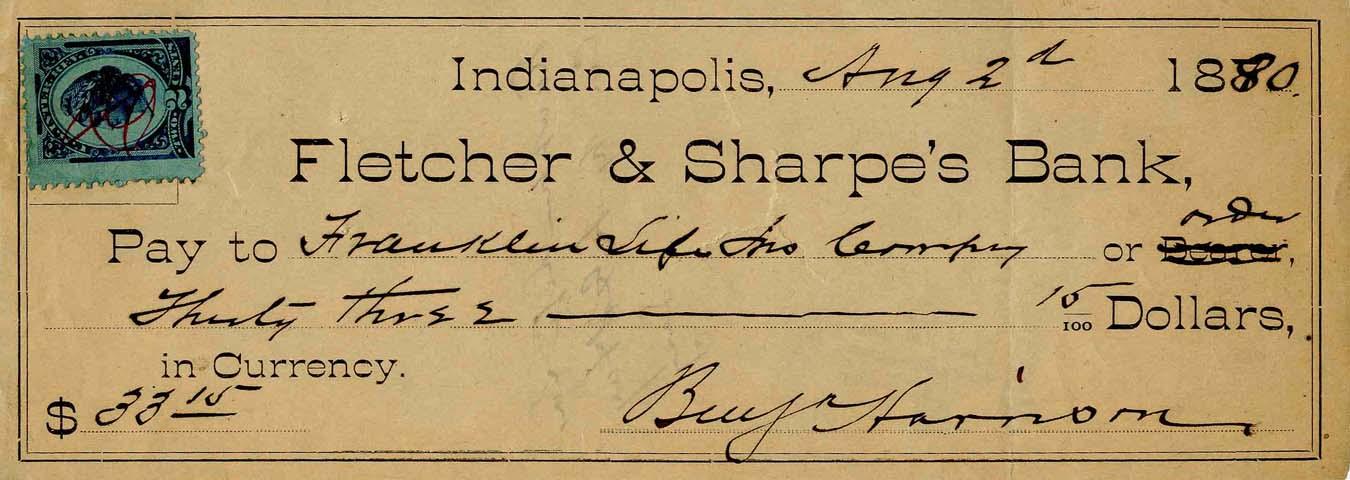 Indianapolis, Aug 2d 1880.
Fletcher & Sharpe's Bank,
order
Pay to Franklin Life Ins Compy or Bearer,
Thirty three 15/100 Dollars,
in Currency.
$ 33 15
Benjn Harrison